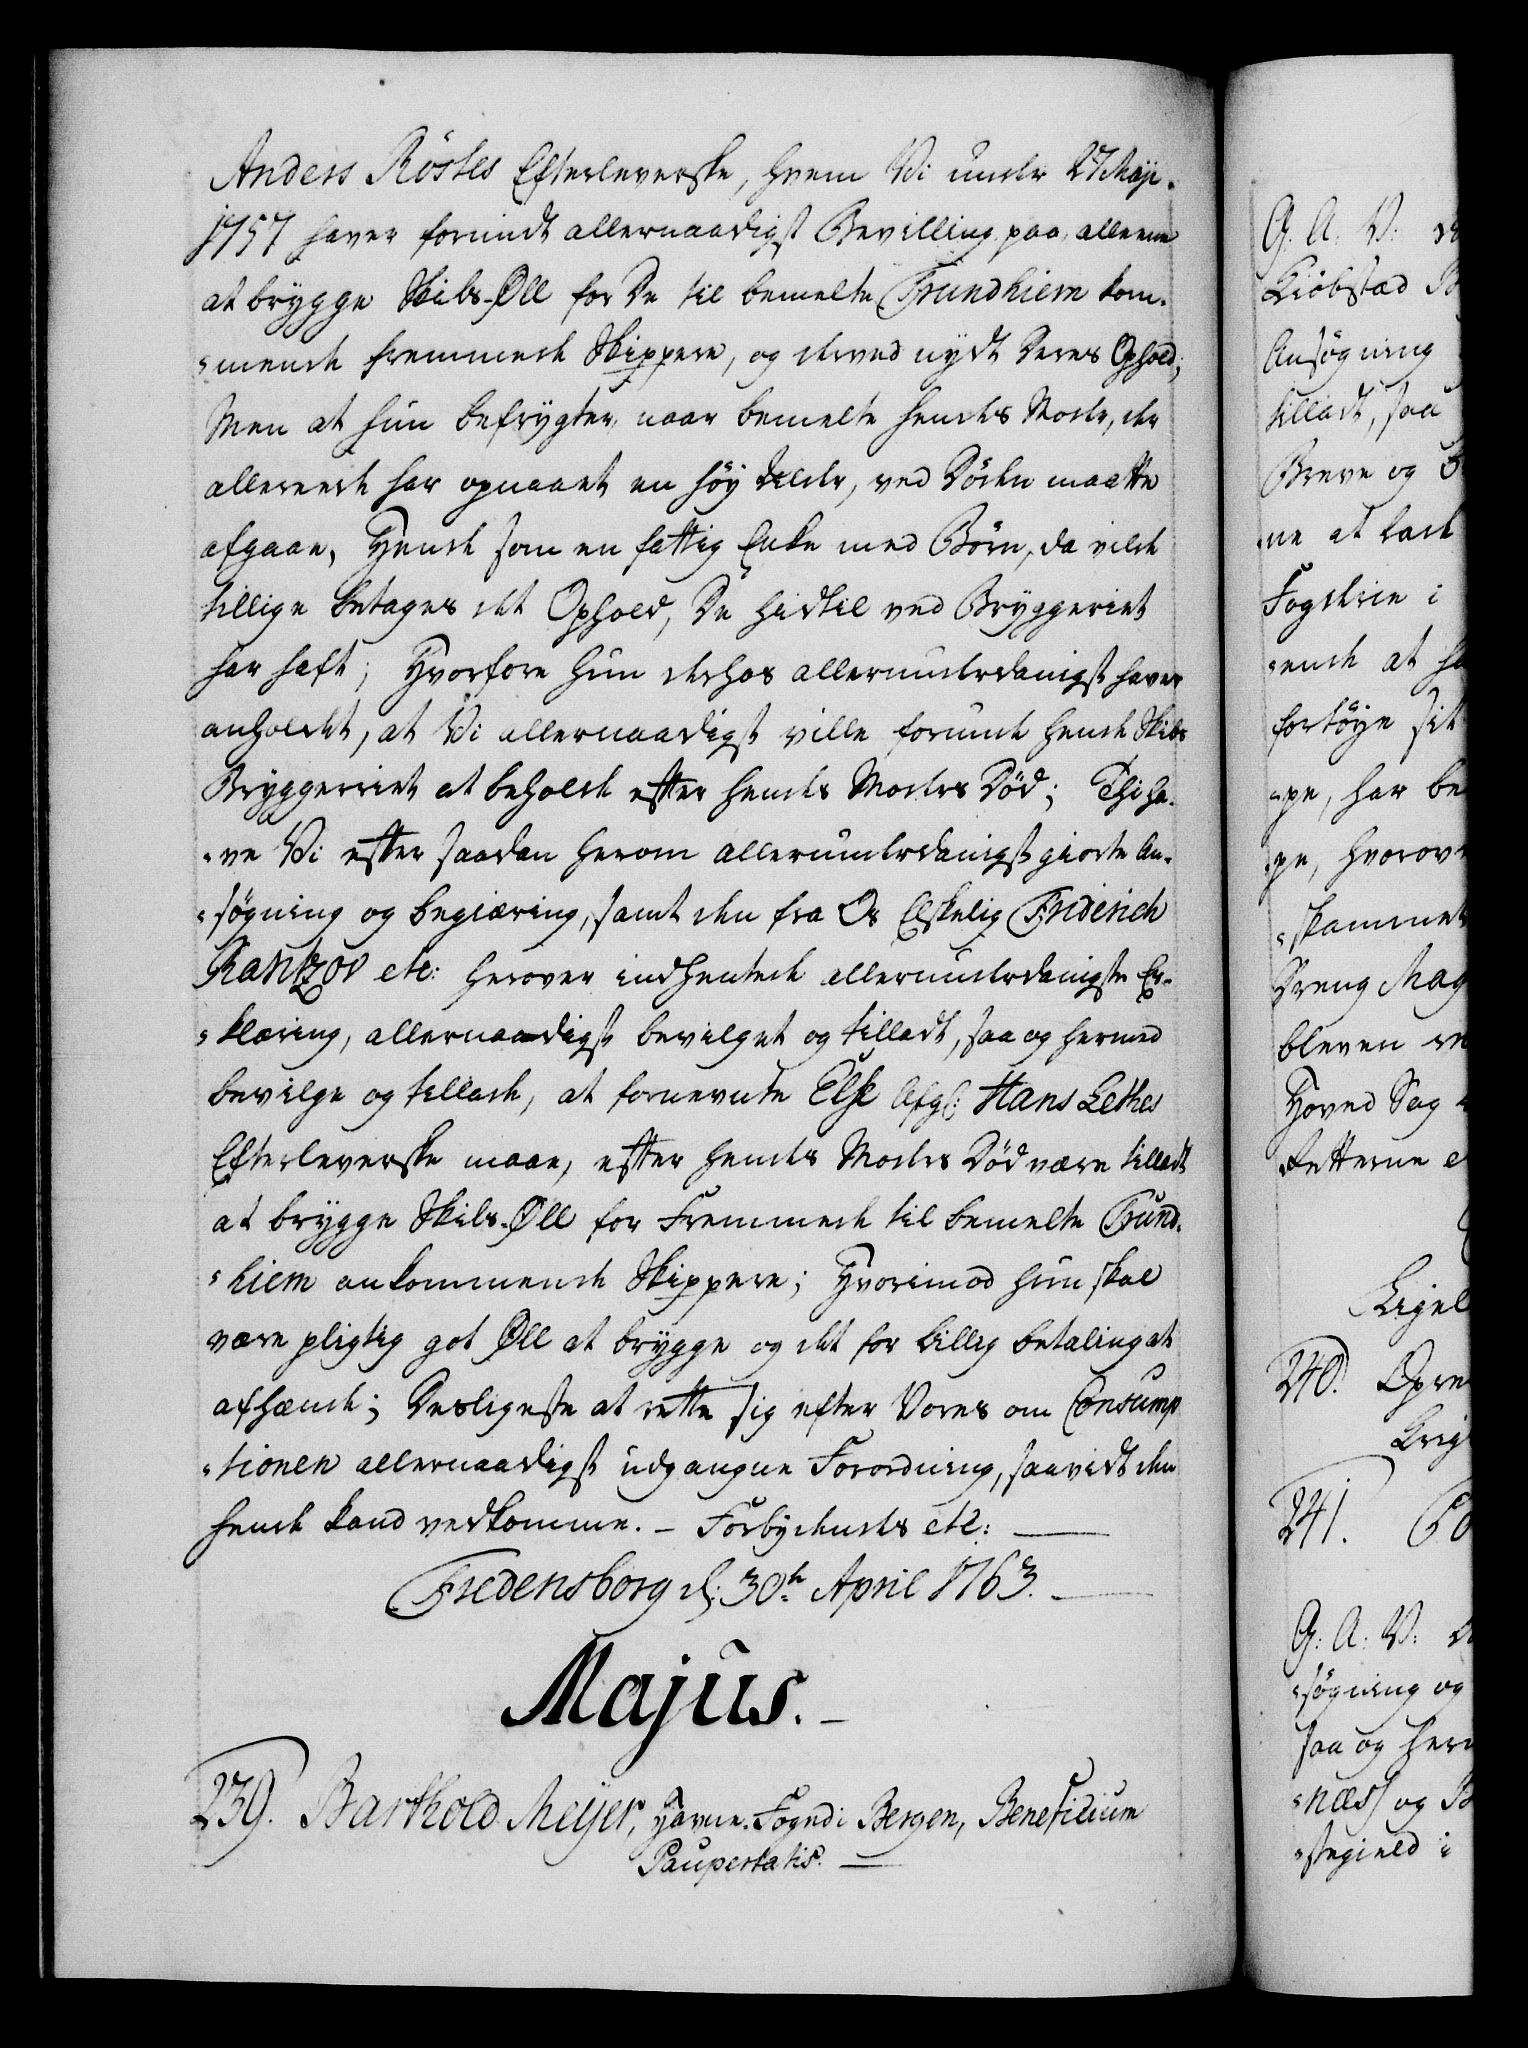 Anders Röstes Efterleverske, hvem Vi under 27 Maji
1757 haver forundt allernaadigst Bevilling paa, alleene
at brygge Skibs-Øll for De til bemelte Trundhiem kom-
mende fremmede Skippere, og derved nydt Deres Ophold;
Men at hun befrygter, naar bemelte hendes Moder, der
allereede har opnaaet en höy Alder, ved Döden maatte
afgaae, Hende som en fattig Enke med Børn, da vilde
tillige betages det Ophold, De hidtil ved Bryggeriet
har haft; Hvorfore hun derhos allerunderdanigst haver
anholdet, at Vi allernaadigst ville forunde hende Skibs
Bryggerriet at beholde efter hendes Moders Död; Thi ha-
ve Vi efter saadan herom allerunderdanigst giorte An-
søgning og begiæring, samt den fra Os Elskelig Friderich
Rantzov etc: herover indhentede allerunderdanigste Er-
klæring, allernaadigst bevilget og tilladt, saa og hermed
bevilge og tillade, at fornevnte Else Afg: Hans Lethes
Efterleverske maae, efter hendes Moders Död være tilladt
at brygge Skibs-Øll for Fremmede til bemelte Trund-
hiem ankommende Skippere; Hvorimod hun skal
være pligtig got Øll at brygge og det for billig betaling at
afhænde; Desligeste at rette sig efter Vores om Consump
tionen allernaadigst udgangne Forordning, saavidt den
hende kand vedkomme. – Forbydendes etc:
Fredensborg d: 30te April 1763.
Majus.
239. Barthold Meijer, Havne-Foged i Bergen, Beneficium
Paupertatis.
G. A. V.
Kiöbstæd
Ansøgning
tilladt, saa
Breve og
ne at lade
Fogderie i
ende at
fortöye sit
pe, har be
pe, hvorov
skammet
Dreng Mag
bleven
Hoved Sag
Retterne
Ligel
240. Opre
Krig
241. Co
G: A: V:
søgning og
saa og herm
næss og
stegield i